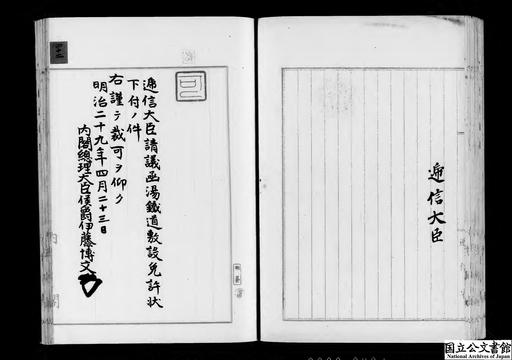 逓信大臣
可
逓信大臣請議函湯鐵道敷設免許状
下付ノ件
右謹テ裁可ヲ仰ク
明治二十九年四月二十三日
内閣總理大臣侯爵伊藤博文
国立公文書館
National Archives of Japan